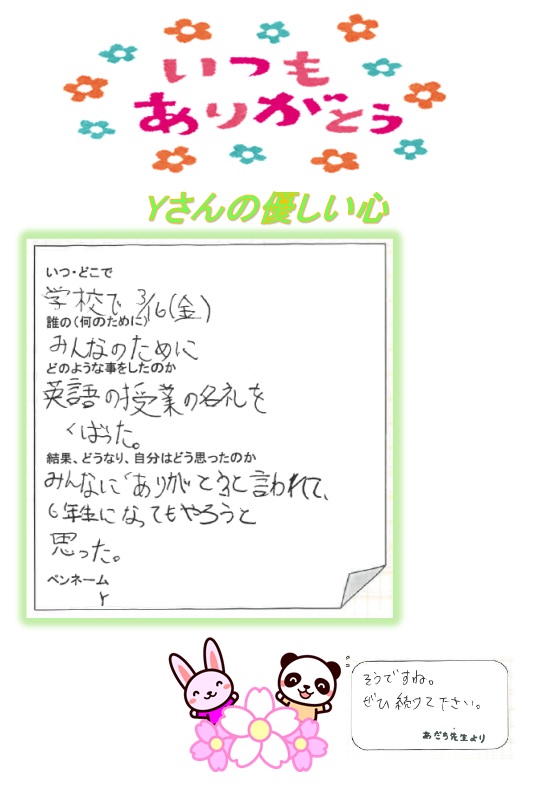 いつも
ありがとう
Yさんの優しい心
いつ・どこで
学校で 3/16(金)
誰の(何のために)
みんなのために
どのような事をしたのか
英語の授業の名札を
くばった。
結果、どうなり、自分はどう思ったのか
みんなに「ありがとう」と言われて、
6年生になってもやろうと
思った。
ペンネーム
Y
そうですね。
ぜひ続けて下さい。
あだち先生より